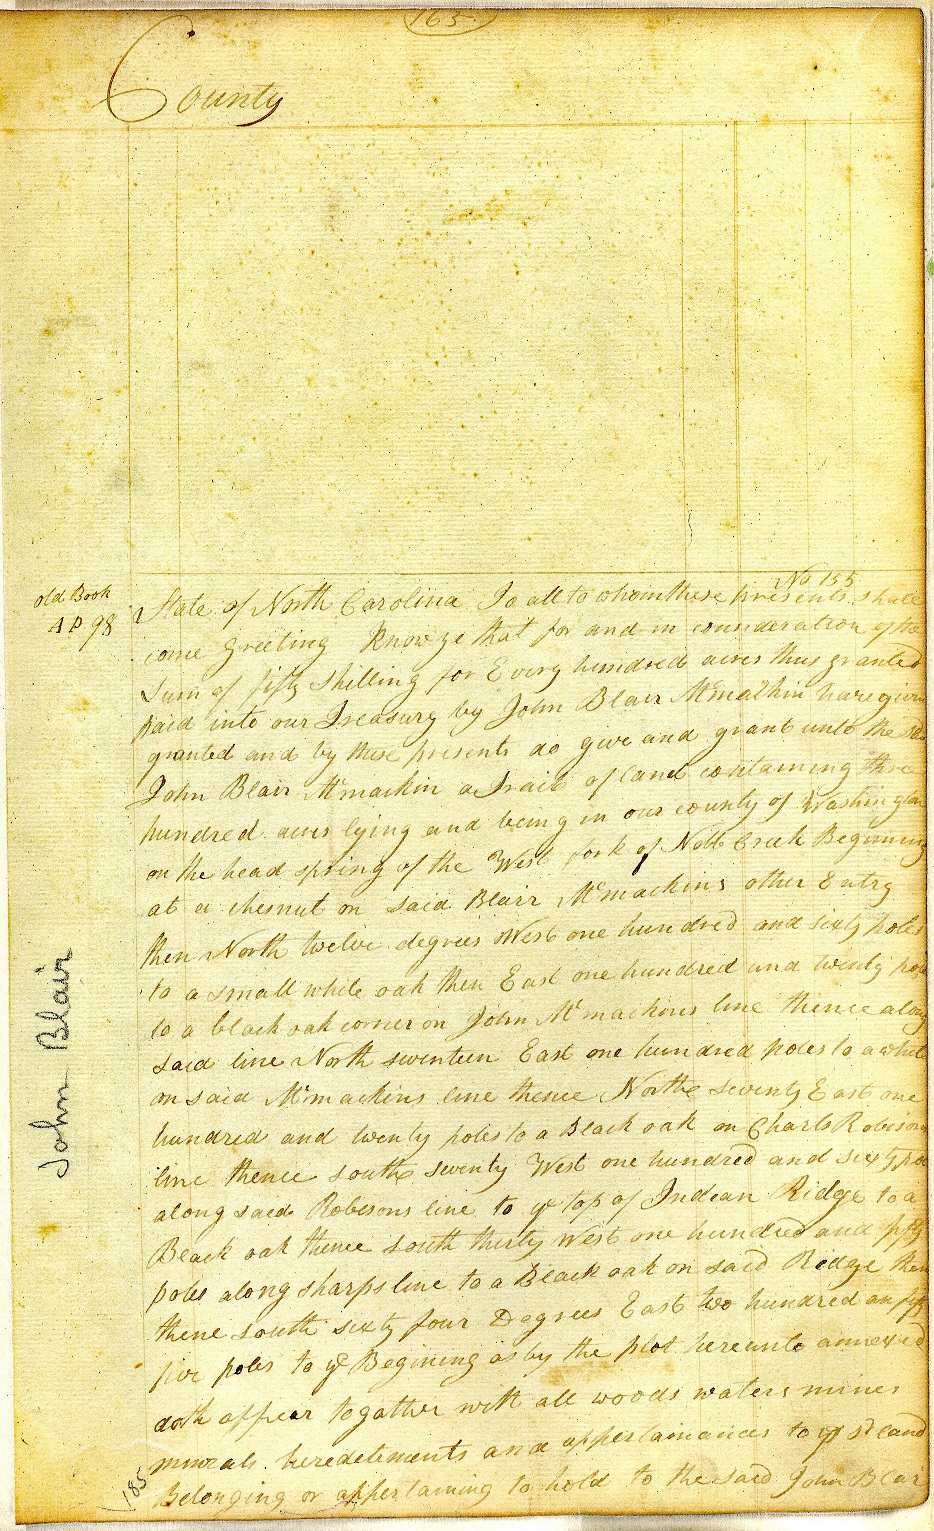 165
County
No 155
old Book
A P 98
State of North Carolina To all to whom these presents shall
come Greeting Know ye that for and in consideration of the
Sum of fifty Shilling for Every hundred acres thus granted
paid into our Treasury by John Blair Mcmachin have given
granted and by these presents do give and grant unto the sd
John Blair Mcmackin a Tract of land containing three
hundred acres lying and being in our county of Washington
on the head spring of the West fork of Nobb Creek Beginning
at a chesnut on said Blair Mcmackins other Entry
then North twelve degrees West one hundred and sixty poles
to a small white oak then East one hundred and twenty poles
to a black oak corner on John Mcmackins line thence along
said line North seventeen East one hundred poles to a white
on said Mcmackins line thence North seventy East one
hundred and twenty poles to a Black oak on Charls Robisons
line thence south seventy West one hundred and sixty poles
along said Robisons line to ye top of Indean Ridge to a
Black oak thence south thirty West one hundred and fifty
poles along sharps line to a Black oak on said Ridge then
thene south sixty four Degrees East two hundred an fifty
five poles to ye Begining as by the plot hereunto annexed
doth appear togather with all woods waters mines
minerals heredetements and appertainances to ye sd land
Belonging or appertaining to hold to the said John Blair
John Blair
185